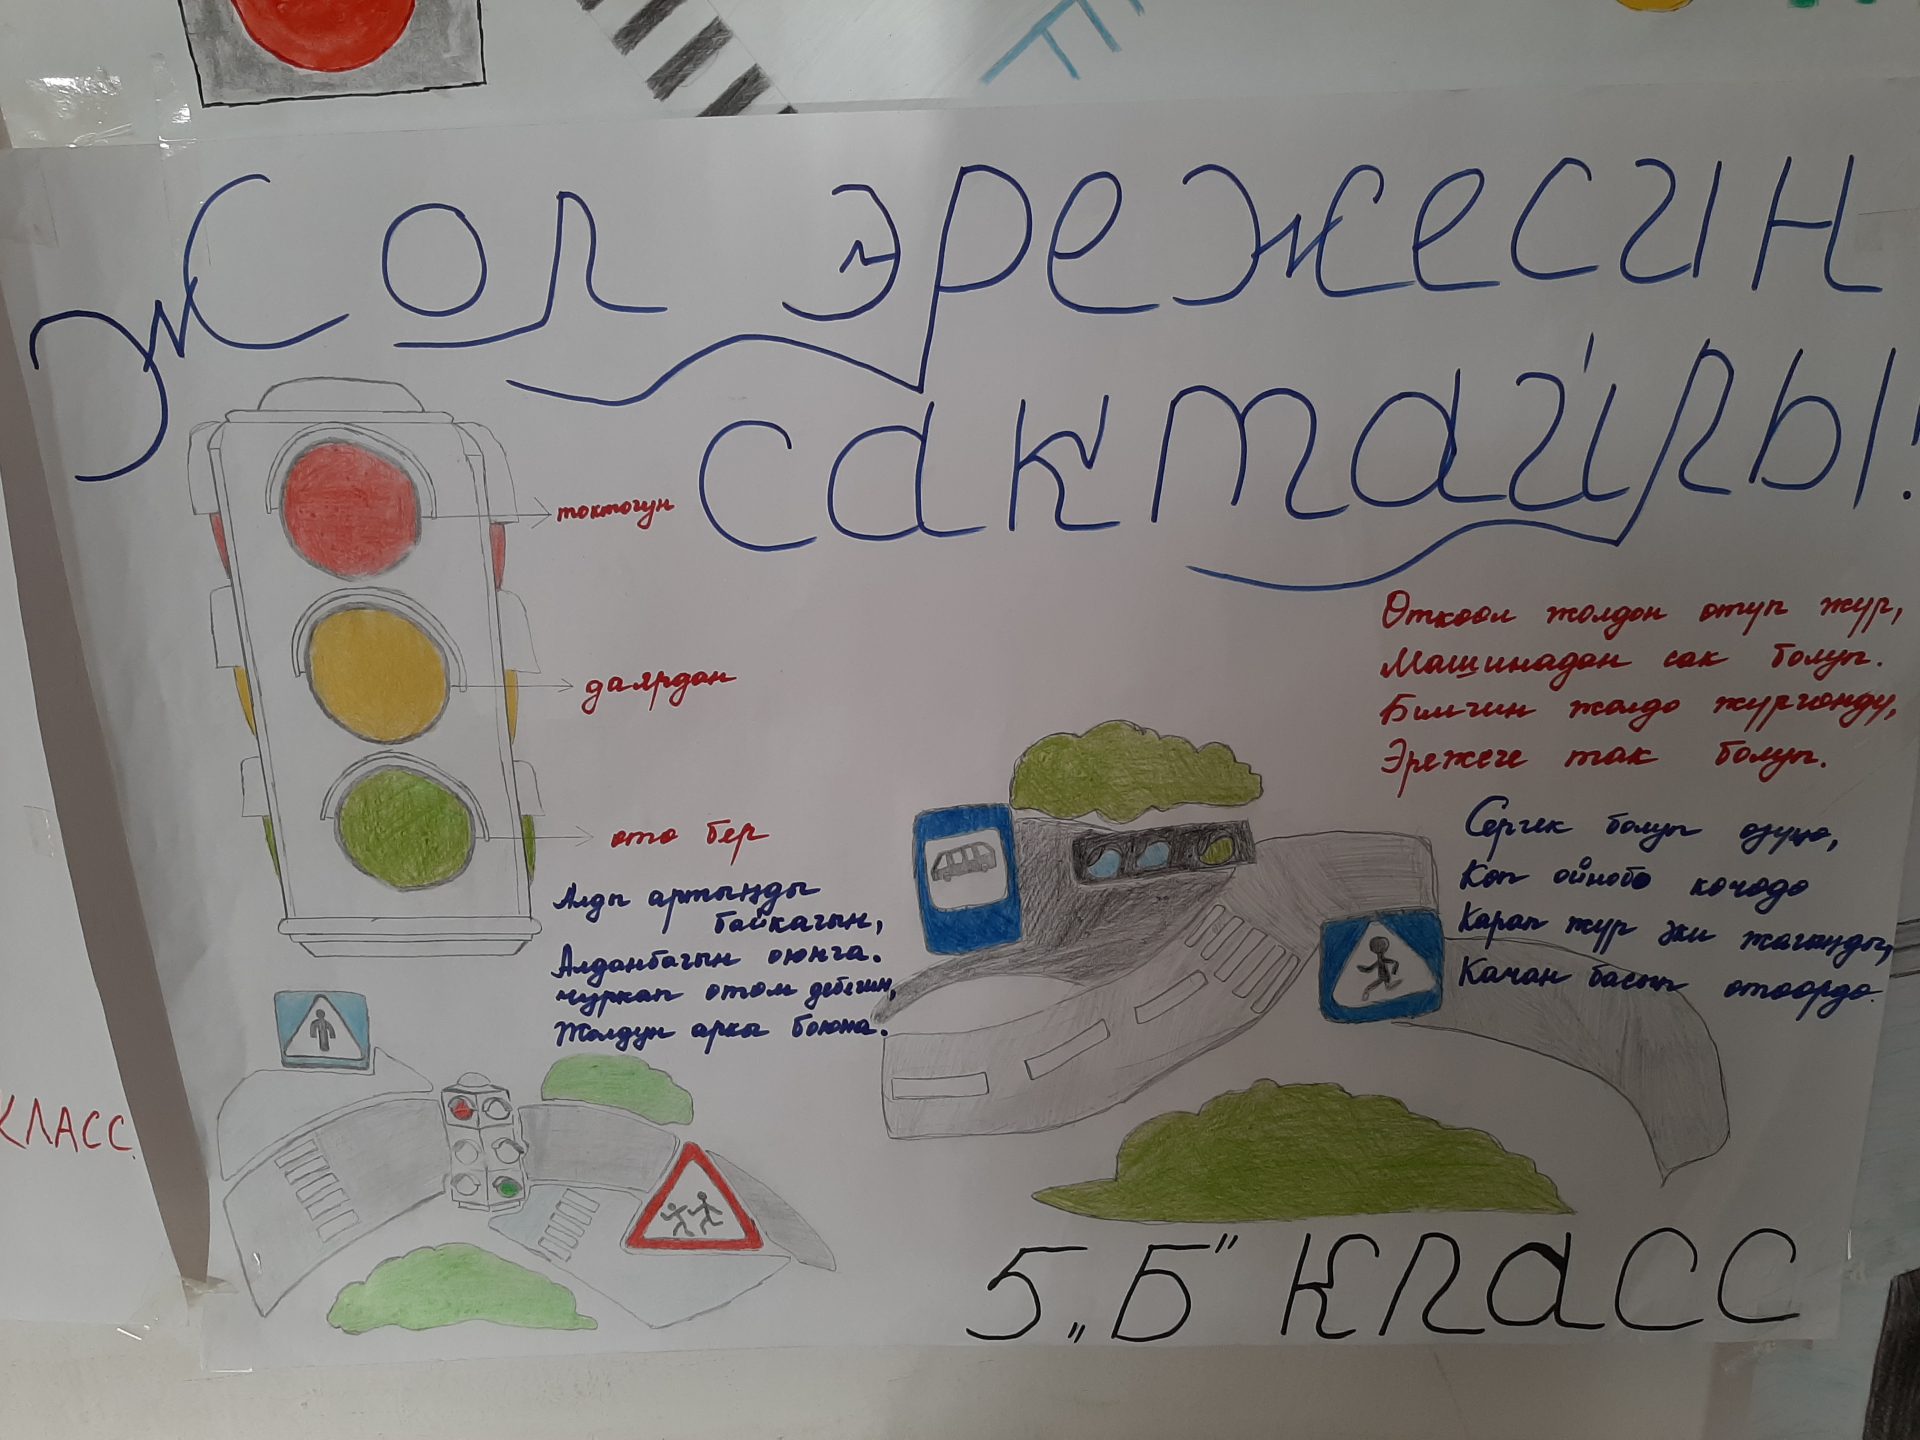 Жол эрежесин
сактайлы!
токтогун
даярдан
ото бер
Алды артыңды
байкагын,
Алданбагын оюнга.
чуркап отом дебегин,
Жолдун арка боюна.
Откоол жолдон отуп жур,
Машинадан сак болуп.
Билгин жолдо жургонду,
Эрежеге так болуп.
Сергек болуп озуңо,
Коп ойнобо кочодо
Карап жур эки жагыңды,
Качан басып отоордо.
5 „Б" класс
КЛАСС.